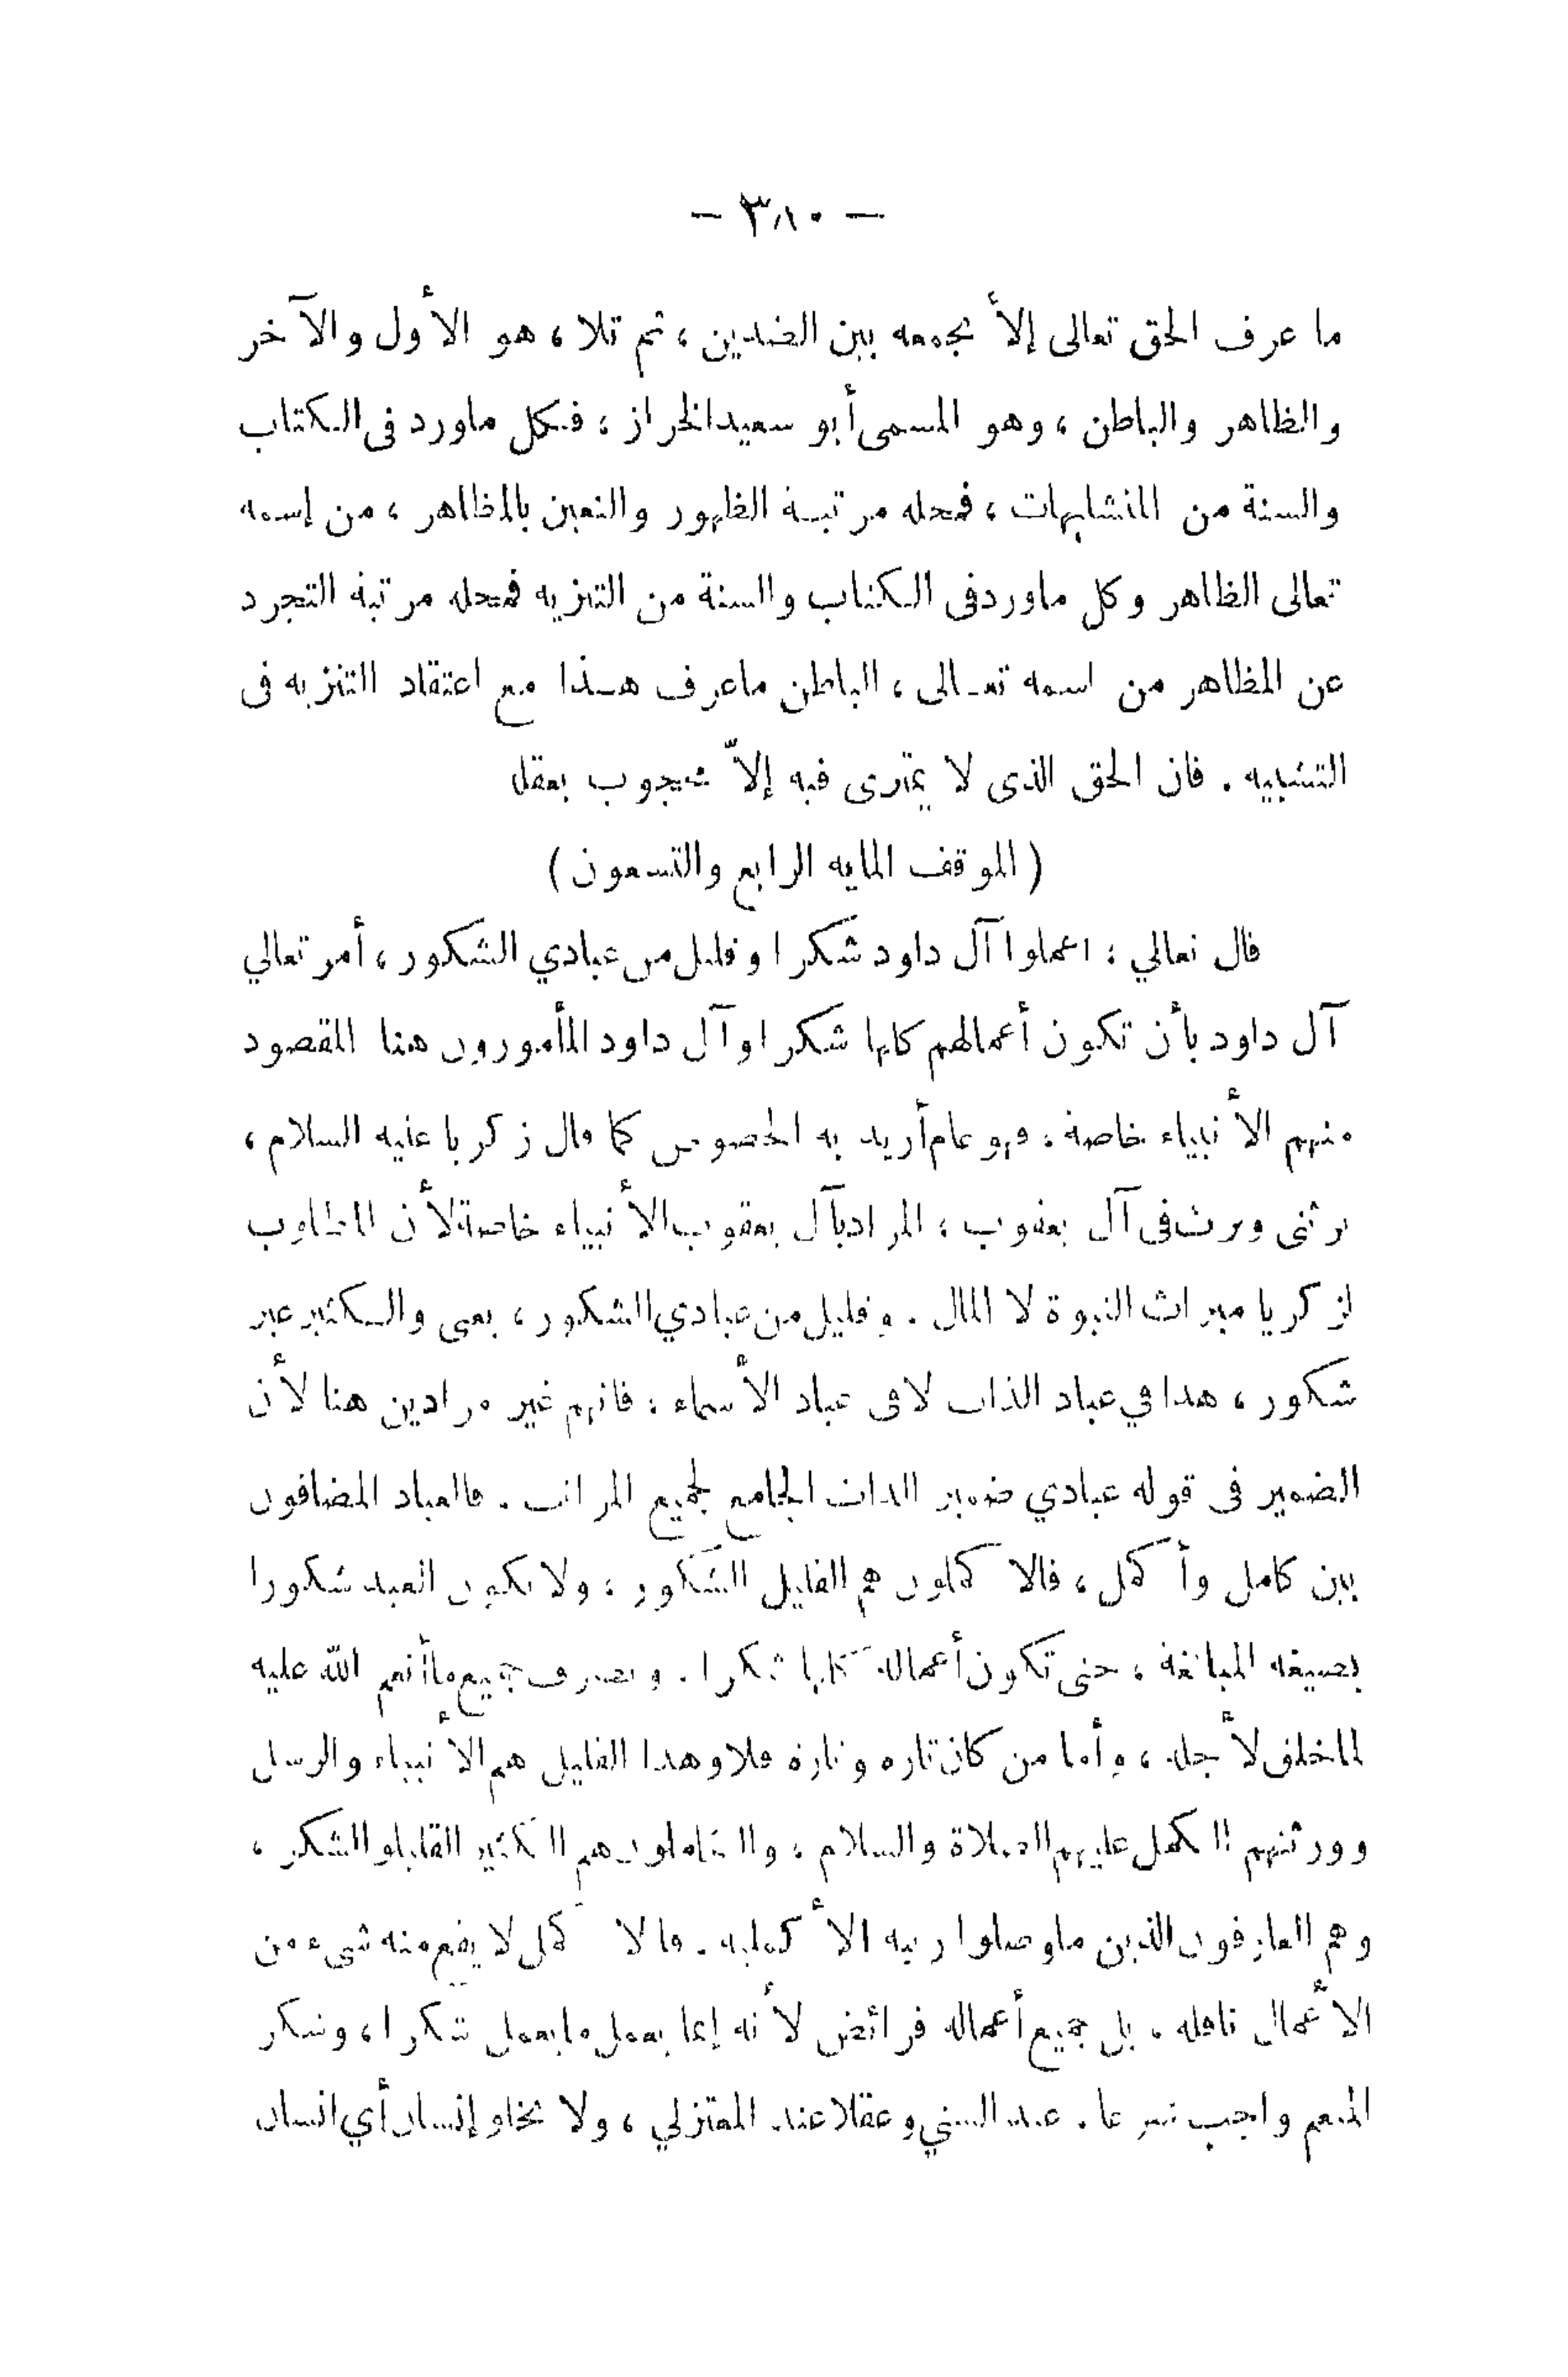 — ٣٨٠ —
ما عرف الحق تعالى إلأ بجمعه بين الضدين ، ثم تلا ، هو الأول والآخر
والظاهر والباطن ، وهو المسمى أبو سعيد الخراز ، فكل ماورد فى الكتاب
والسنة من المتشابهات ، فمحله مرتبة الظهور والتعين بالمظاهر ، من إسمه
تعالى الظاهر وكل ماورد فى الكتاب والسنة من التنزيه فمحله مرتبة التجرد
عن المظاهر من اسمه تعالى ، الباطن ماعرف هذا مع اعتقاد التنزيه فى
التشبيه . فان الحق الذى لا يمترى فيه إلاّ محجوب بعقل
( الموقف المايه الرابع والتسعون )
قال تعالي : اعملوا آل داود شكرا وقليل من عبادي الشكور ، أمر تعالي
آل داود بأن تكون أعمالهم كلها شكرا وآل داود المأمورون هنا المقصود
منهم الأنبياء خاصة ، فهو عام أريد به الخصوص كما قال زكريا عليه السلام ،
يرثنى ويرث فى آل يعقوب ، المراد بآل يعقوب الأنبياء خاصة لأن المطلوب
لزكريا ميراث النبوة لا المال . وقليل من عبادي الشكور ، يعنى والكثير غير
شكور ، هذا في عباد الذات لا فى عباد الأسماء ، فانهم غير مرادين هنا لأن
الضمير فى قوله عبادي ضمير الذات الجامع لجميع المراتب . فالعباد المضافون
بين كامل وأكمل ، فالاكملون هم القليل الشكور ، ولا يكون العبد شكورا
بصيغه المبالغة ، حتى تكون أعماله كلها شكرا . ويصرف جميع ماأنعم الله عليه
لما خلق لأجله ، وأما من كان تاره وتاره فلا وهذا القليل هم الأنبياء والرسل
وورثتهم الكمل عليهم الصلاة والسلام ، والكاملون هم الكثير القليلو الشكر ،
وهم العارفون الذين ماوصلوا رتبه الأكمليه . فالاكمل لا يقع منه شىء من
الأعمال نافله ، بل جميع أعماله فرائض لأنه إنما يعمل ما يعمل شكرا ، وشكر
المنعم واجب شرعا . عند السني وعقلا عند المعتزلي ، ولا يخلو إنسان أي انسان